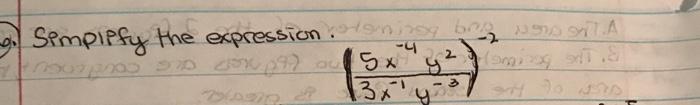 9. Simplify the expression:
(5x⁻⁴ y² / 3x⁻¹ y⁻³)⁻²